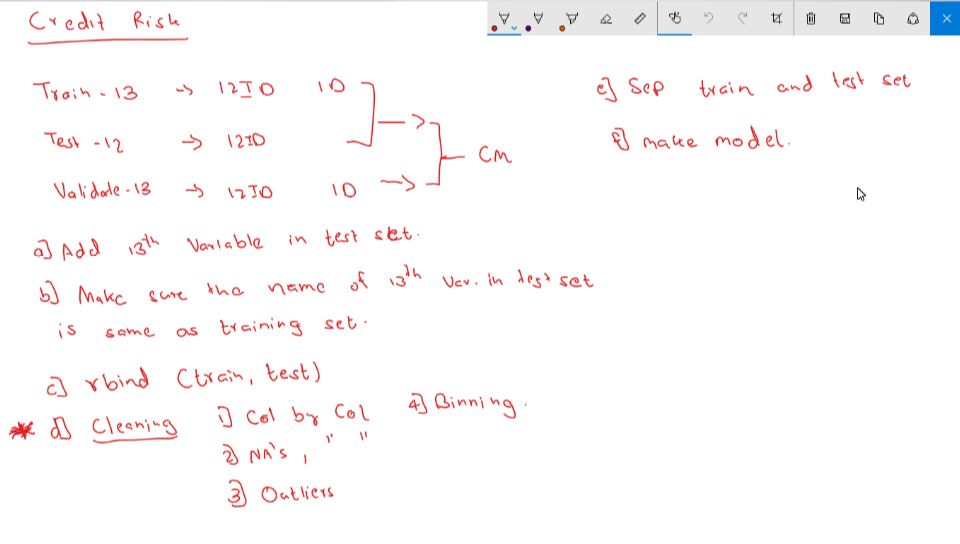 Credit Risk
Train - 13 → 12 ID 1D
Test - 12 → 12ID
CM
Validate - 13 → 12ID 1D
a] Add 13th Variable in test set.
b] Make sure the name of 13th Var. in test set
is same as training set.
c] rbind (train, test)
* d] Cleaning 1] Col by Col 4] Binning.
2] NA's, " "
3] Outliers
e] Sep train and test set
f] make model.